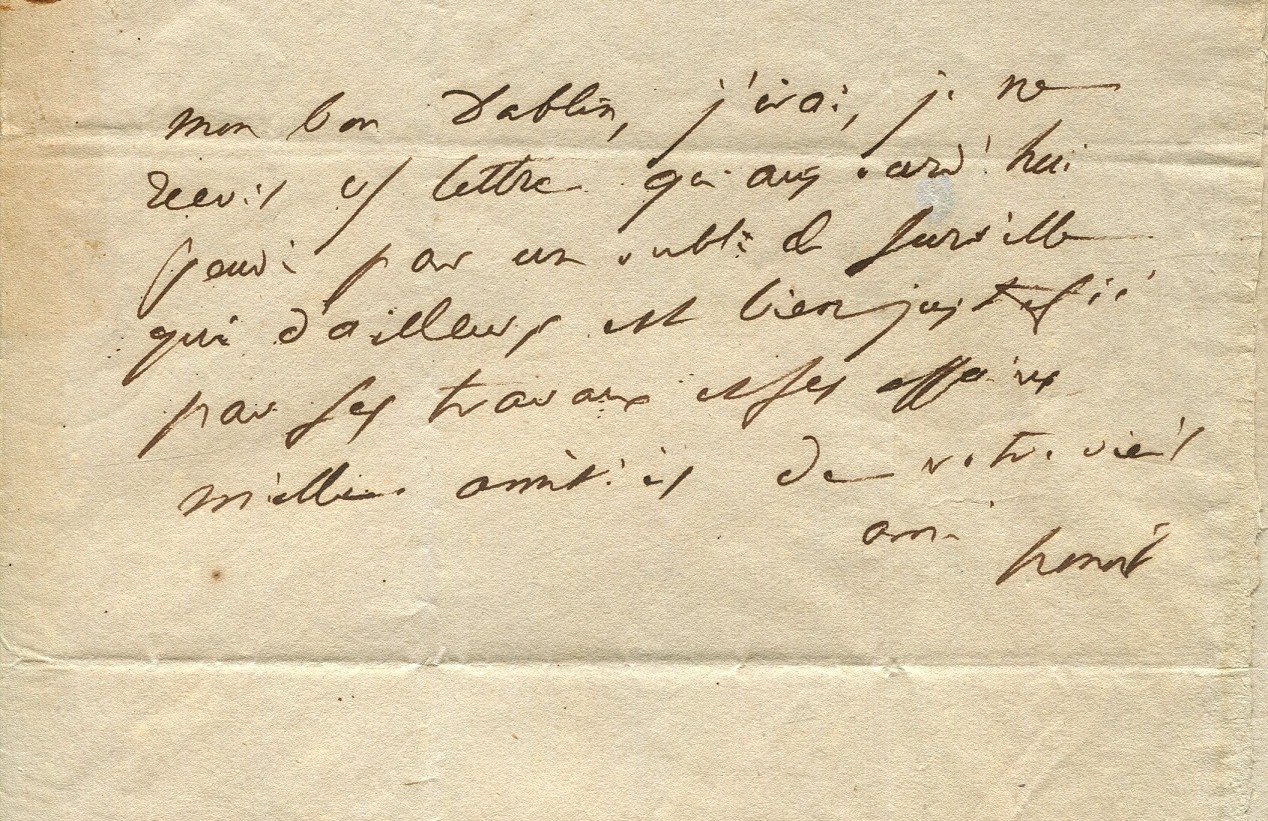 mon bon Dablin, j'irai, je ne
reçois v/ lettre qu'aujourd'hui
jeudi par un oubli de Surville
qui d'ailleurs est bien justifié
par ses travaux et ses affaires
mille amitiés de votre vieil
ami honoré